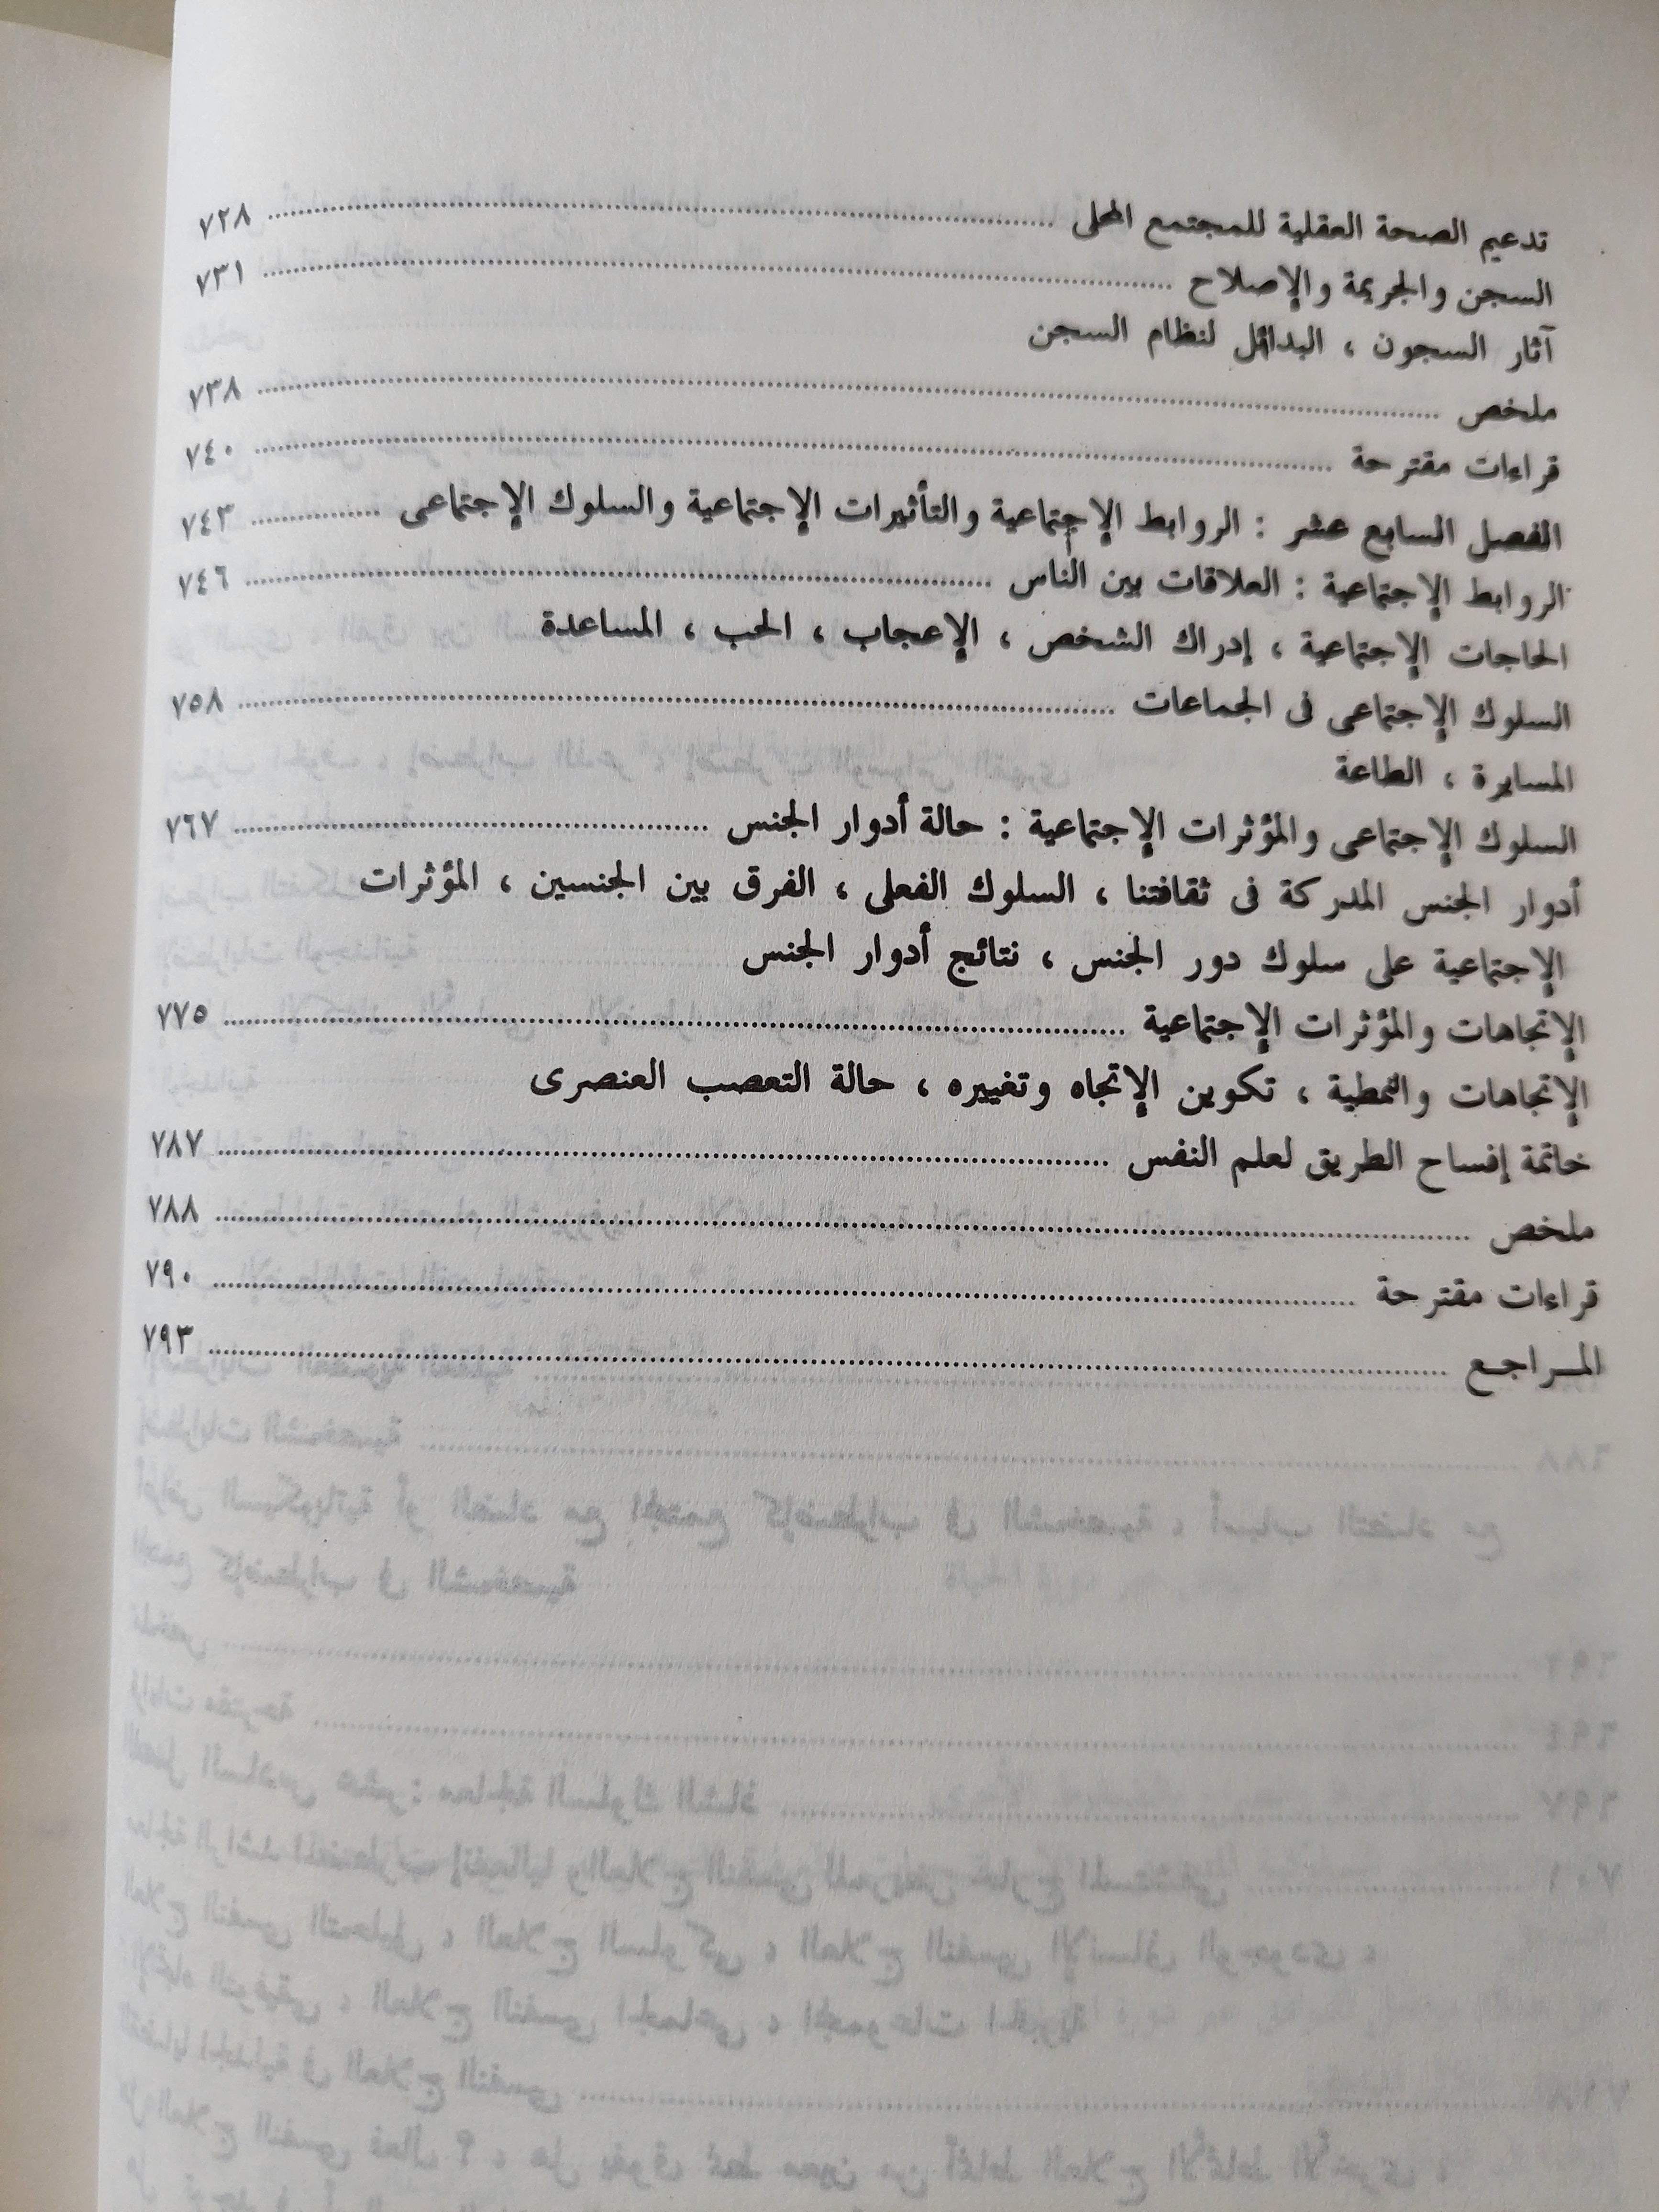 تدعيم الصحة العقلية للمجتمع المحلى ........ ٧٢٨
السجن والجريمة والإصلاح ........ ٧٣١
آثار السجون ، البدائل لنظام السجن
ملخص ........ ٧٣٨
قراءات مقترحة ........ ٧٤٠
الفصل السابع عشر : الروابط الإجتماعية والتأثيرات الإجتماعية والسلوك الإجتماعى ........ ٧٤٣
الروابط الإجتماعية : العلاقات بين الناس ........ ٧٤٦
الحاجات الإجتماعية ، إدراك الشخص ، الإعجاب ، الحب ، المساعدة
السلوك الإجتماعى فى الجماعات ........ ٧٥٨
المسايرة ، الطاعة
السلوك الإجتماعى والمؤثرات الإجتماعية : حالة أدوار الجنس ........ ٧٦٧
أدوار الجنس المدركة فى ثقافتنا ، السلوك الفعلى ، الفرق بين الجنسين ، المؤثرات
الإجتماعية على سلوك دور الجنس ، نتائج أدوار الجنس
الإتجاهات والمؤثرات الإجتماعية ........ ٧٧٥
الإتجاهات والنمطية ، تكوين الإتجاه وتغييره ، حالة التعصب العنصرى
خاتمة إفساح الطريق لعلم النفس ........ ٧٨٧
ملخص ........ ٧٨٨
قراءات مقترحة ........ ٧٩٠
المـراجـع ........ ٧٩٣